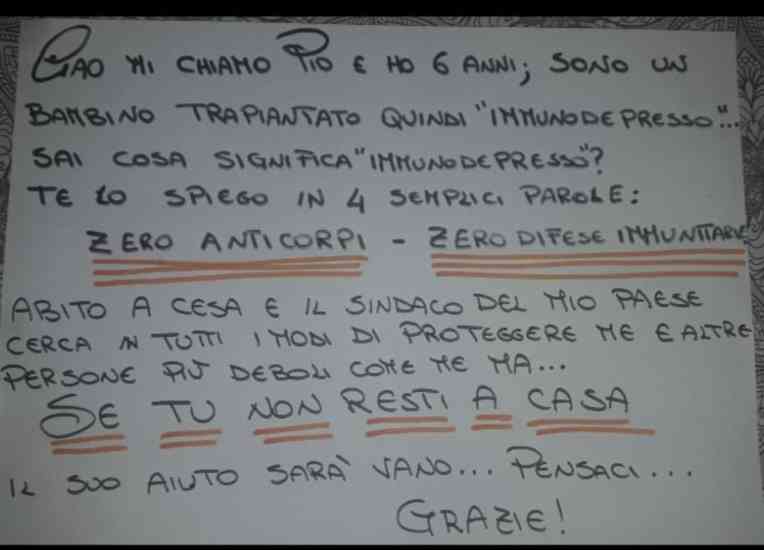 CIAO MI CHIAMO PIO E HO 6 ANNI; SONO UN
BAMBINO TRAPIANTATO QUINDI "IMMUNODEPRESSO"...
SAI COSA SIGNIFICA "IMMUNODEPRESSO"?
TE LO SPIEGO IN 4 SEMPLICI PAROLE:
ZERO ANTICORPI - ZERO DIFESE IMMUNITARIE
ABITO A CESA E IL SINDACO DEL MIO PAESE
CERCA IN TUTTI I MODI DI PROTEGGERE ME E ALTRE
PERSONE PIÙ DEBOLI COME ME MA...
SE TU NON RESTI A CASA
IL SUO AIUTO SARÀ VANO... PENSACI...
GRAZIE!